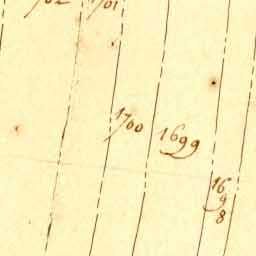 1701
1700
1699
1698